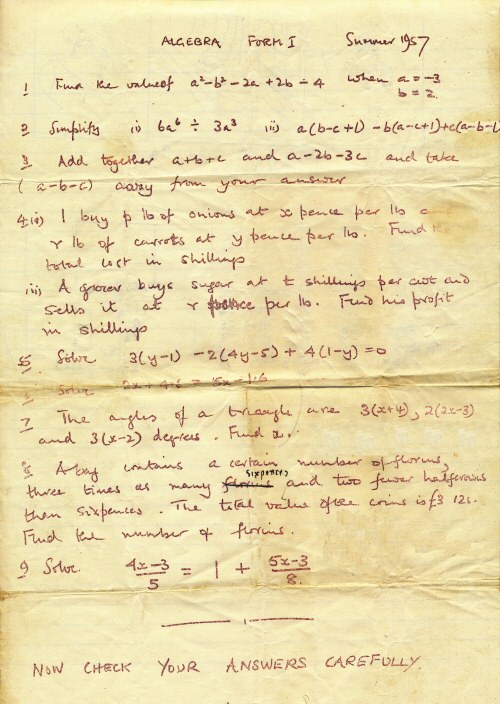 ALGEBRA FORM I Summer 1957
1 Find the value of a²-b²-2a+2b-4 when a=-3
b=2.
2 Simplify i) 6a⁶ ÷ 3a³ ii) a(b-c+1) -b(a-c+1)+c(a-b-1
3 Add together a+b+c and a-2b-3c and take
(a-b-c) away from your answer
4 i) I buy p lb of onions at x pence per lb
r lb of carrots at y pence per lb. Find
total cost in shillings
ii) A grocer buys sugar at t shillings per cwt and
sells it at r pence per lb. Find his profit
in shillings
5. Solve 3(y-1) -2(4y-5) + 4(1-y) =0
6 Solve
7 The angles of a triangle are 3(x+4), 2(2x-3)
and 3(x-2) degrees. Find x.
8 A bag contains a certain number of florins,
sixpences
three times as many florins and two fewer halfcrowns
than sixpences. The total value of the coins is £3 12s.
Find the number of florins.
9 Solve. 4x-3/5 = 1 + 5x-3/8.
NOW CHECK YOUR ANSWERS CAREFULLY.